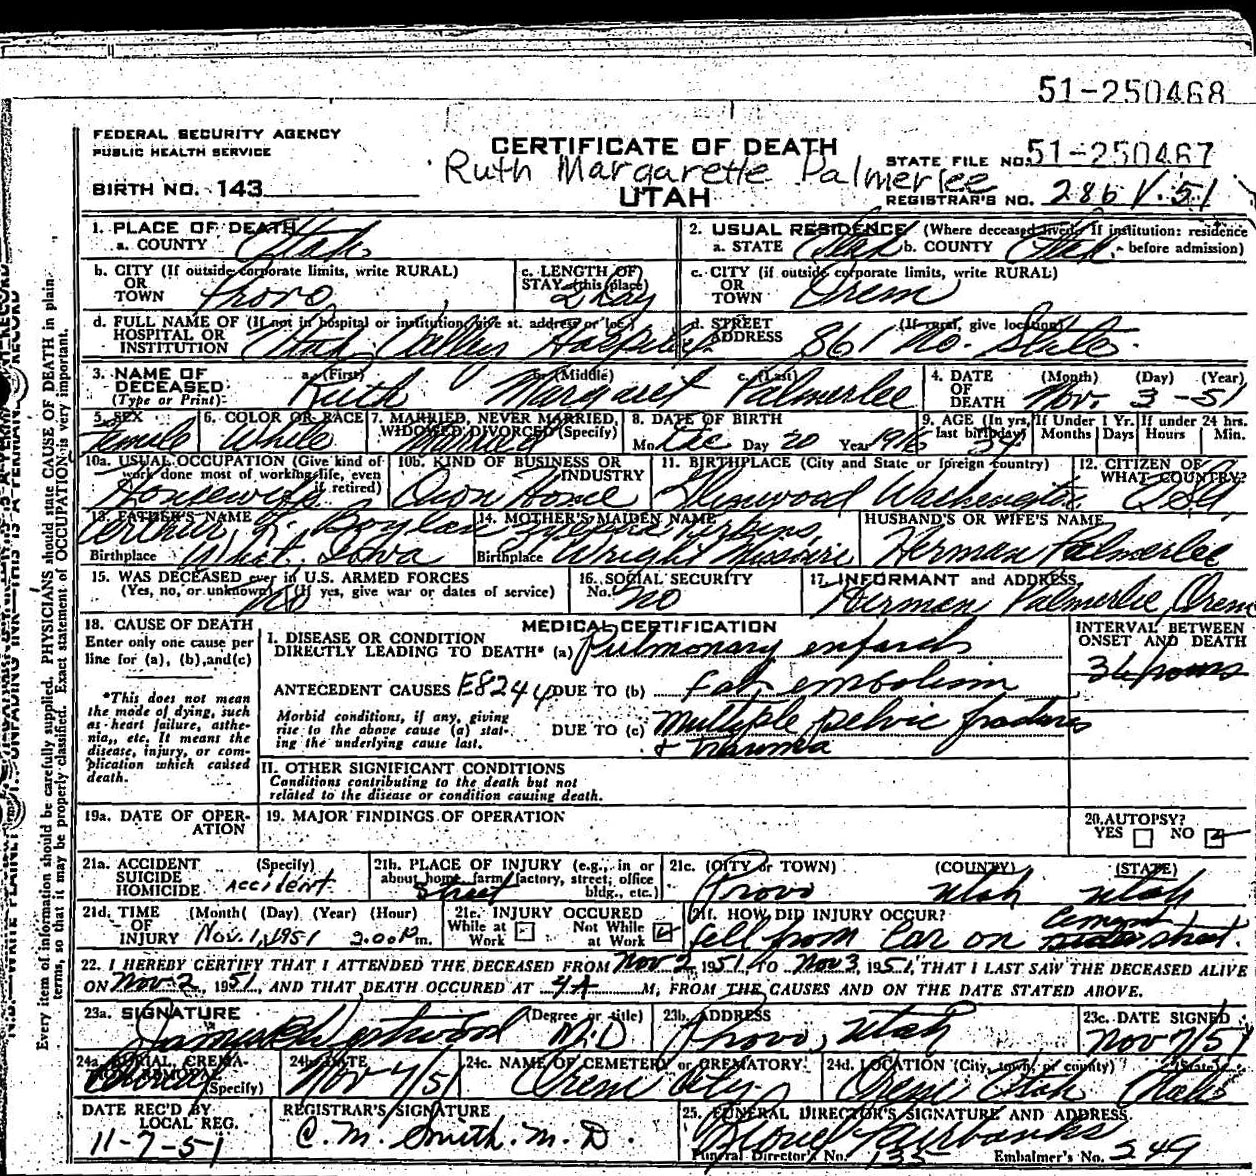 51-250468
FEDERAL SECURITY AGENCY
PUBLIC HEALTH SERVICE
CERTIFICATE OF DEATH
STATE FILE NO. 51-250467
Ruth Margarette Palmerlee
BIRTH NO. 143
UTAH
REGISTRAR'S NO. 286 V-51
1. PLACE OF DEATH
a. COUNTY Utah
2. USUAL RESIDENCE (Where deceased lived. If institution: residence before admission)
a. STATE Utah b. COUNTY Utah
b. CITY (If outside corporate limits, write RURAL)
OR TOWN Provo
c. LENGTH OF STAY (this place) 2 Day
c. CITY (if outside corporate limits, write RURAL)
OR TOWN Orem
d. FULL NAME OF (If not in hospital or institution, give st. address or loc.)
HOSPITAL OR INSTITUTION Utah Valley Hospital
d. STREET ADDRESS (If rural, give location) 861 No. State
3. NAME OF DECEASED (Type or Print) a. (First) Ruth b. (Middle) Margaret c. (Last) Palmerlee
4. DATE OF DEATH (Month) (Day) (Year) Nov. 3 - 51
5. SEX Female
6. COLOR OR RACE White
7. MARRIED, NEVER MARRIED, WIDOWED, DIVORCED (Specify) Married
8. DATE OF BIRTH Mo. Dec Day 20 Year 1916
9. AGE (In yrs. last birthday) If Under 1 Yr. Months Days If under 24 hrs. Hours Min.
10a. USUAL OCCUPATION (Give kind of work done most of working life, even if retired) Housewife
10b. KIND OF BUSINESS OR INDUSTRY Own Home
11. BIRTHPLACE (City and State or foreign country) Washington
12. CITIZEN OF WHAT COUNTRY? USA
13. FATHER'S NAME Arthur Boylan
Birthplace Iowa
14. MOTHER'S MAIDEN NAME
Birthplace Wright Missouri
HUSBAND'S OR WIFE'S NAME
Herman Palmerlee
15. WAS DECEASED ever in U.S. ARMED FORCES
(Yes, no, or unknown) (If yes, give war or dates of service) No
16. SOCIAL SECURITY No. No
17. INFORMANT and ADDRESS
Herman Palmerlee Orem
18. CAUSE OF DEATH
Enter only one cause per line for (a), (b), and (c)
*This does not mean the mode of dying, such as heart failure, asthenia, etc. It means the disease, injury, or complication which caused death.
MEDICAL CERTIFICATION
INTERVAL BETWEEN ONSET AND DEATH
I. DISEASE OR CONDITION DIRECTLY LEADING TO DEATH* (a) Pulmonary enfarct
36 hours
ANTECEDENT CAUSES E8244 DUE TO (b) Fat embolism
Morbid conditions, if any, giving rise to the above cause (a) stating the underlying cause last.
DUE TO (c) Multiple pelvic fractures
& trauma
II. OTHER SIGNIFICANT CONDITIONS
Conditions contributing to the death but not related to the disease or condition causing death.
19a. DATE OF OPERATION
19. MAJOR FINDINGS OF OPERATION
20. AUTOPSY?
YES NO
21a. ACCIDENT SUICIDE HOMICIDE (Specify) Accident
21b. PLACE OF INJURY (e.g., in or about home, farm, factory, street, office bldg., etc.) Street
21c. (CITY or TOWN) (COUNTY) (STATE)
Provo Utah Utah
21d. TIME OF INJURY (Month) (Day) (Year) (Hour) Nov. 1, 1951 2:00 P m.
21e. INJURY OCCURED
While at Work Not While at Work
21f. HOW DID INJURY OCCUR?
fell from Car on cement street.
22. I HEREBY CERTIFY THAT I ATTENDED THE DECEASED FROM Nov 2, 1951 TO Nov 3, 1951, THAT I LAST SAW THE DECEASED ALIVE
ON Nov-2, 1951, AND THAT DEATH OCCURED AT 4A M, FROM THE CAUSES AND ON THE DATE STATED ABOVE.
23a. SIGNATURE (Degree or title)
James Westwood M.D
23b. ADDRESS
Provo, Utah
23c. DATE SIGNED
Nov 7/51
24a. BURIAL, CREMATION, REMOVAL (Specify)
24b. DATE Nov 7/51
24c. NAME OF CEMETERY or CREMATORY
Orem City
24d. LOCATION (City, town, or county) (State)
Orem Utah Utah
DATE REC'D BY LOCAL REG.
11-7-51
REGISTRAR'S SIGNATURE
C. M. Smith. M. D.
25. FUNERAL DIRECTOR'S SIGNATURE AND ADDRESS
Fairbanks
Funeral Director's No. 135 Embalmer's No. 249
Every item of information should be carefully supplied. PHYSICIANS should state CAUSE OF DEATH in plain
terms, so that it may be properly classified. Exact statement of OCCUPATION is very important.